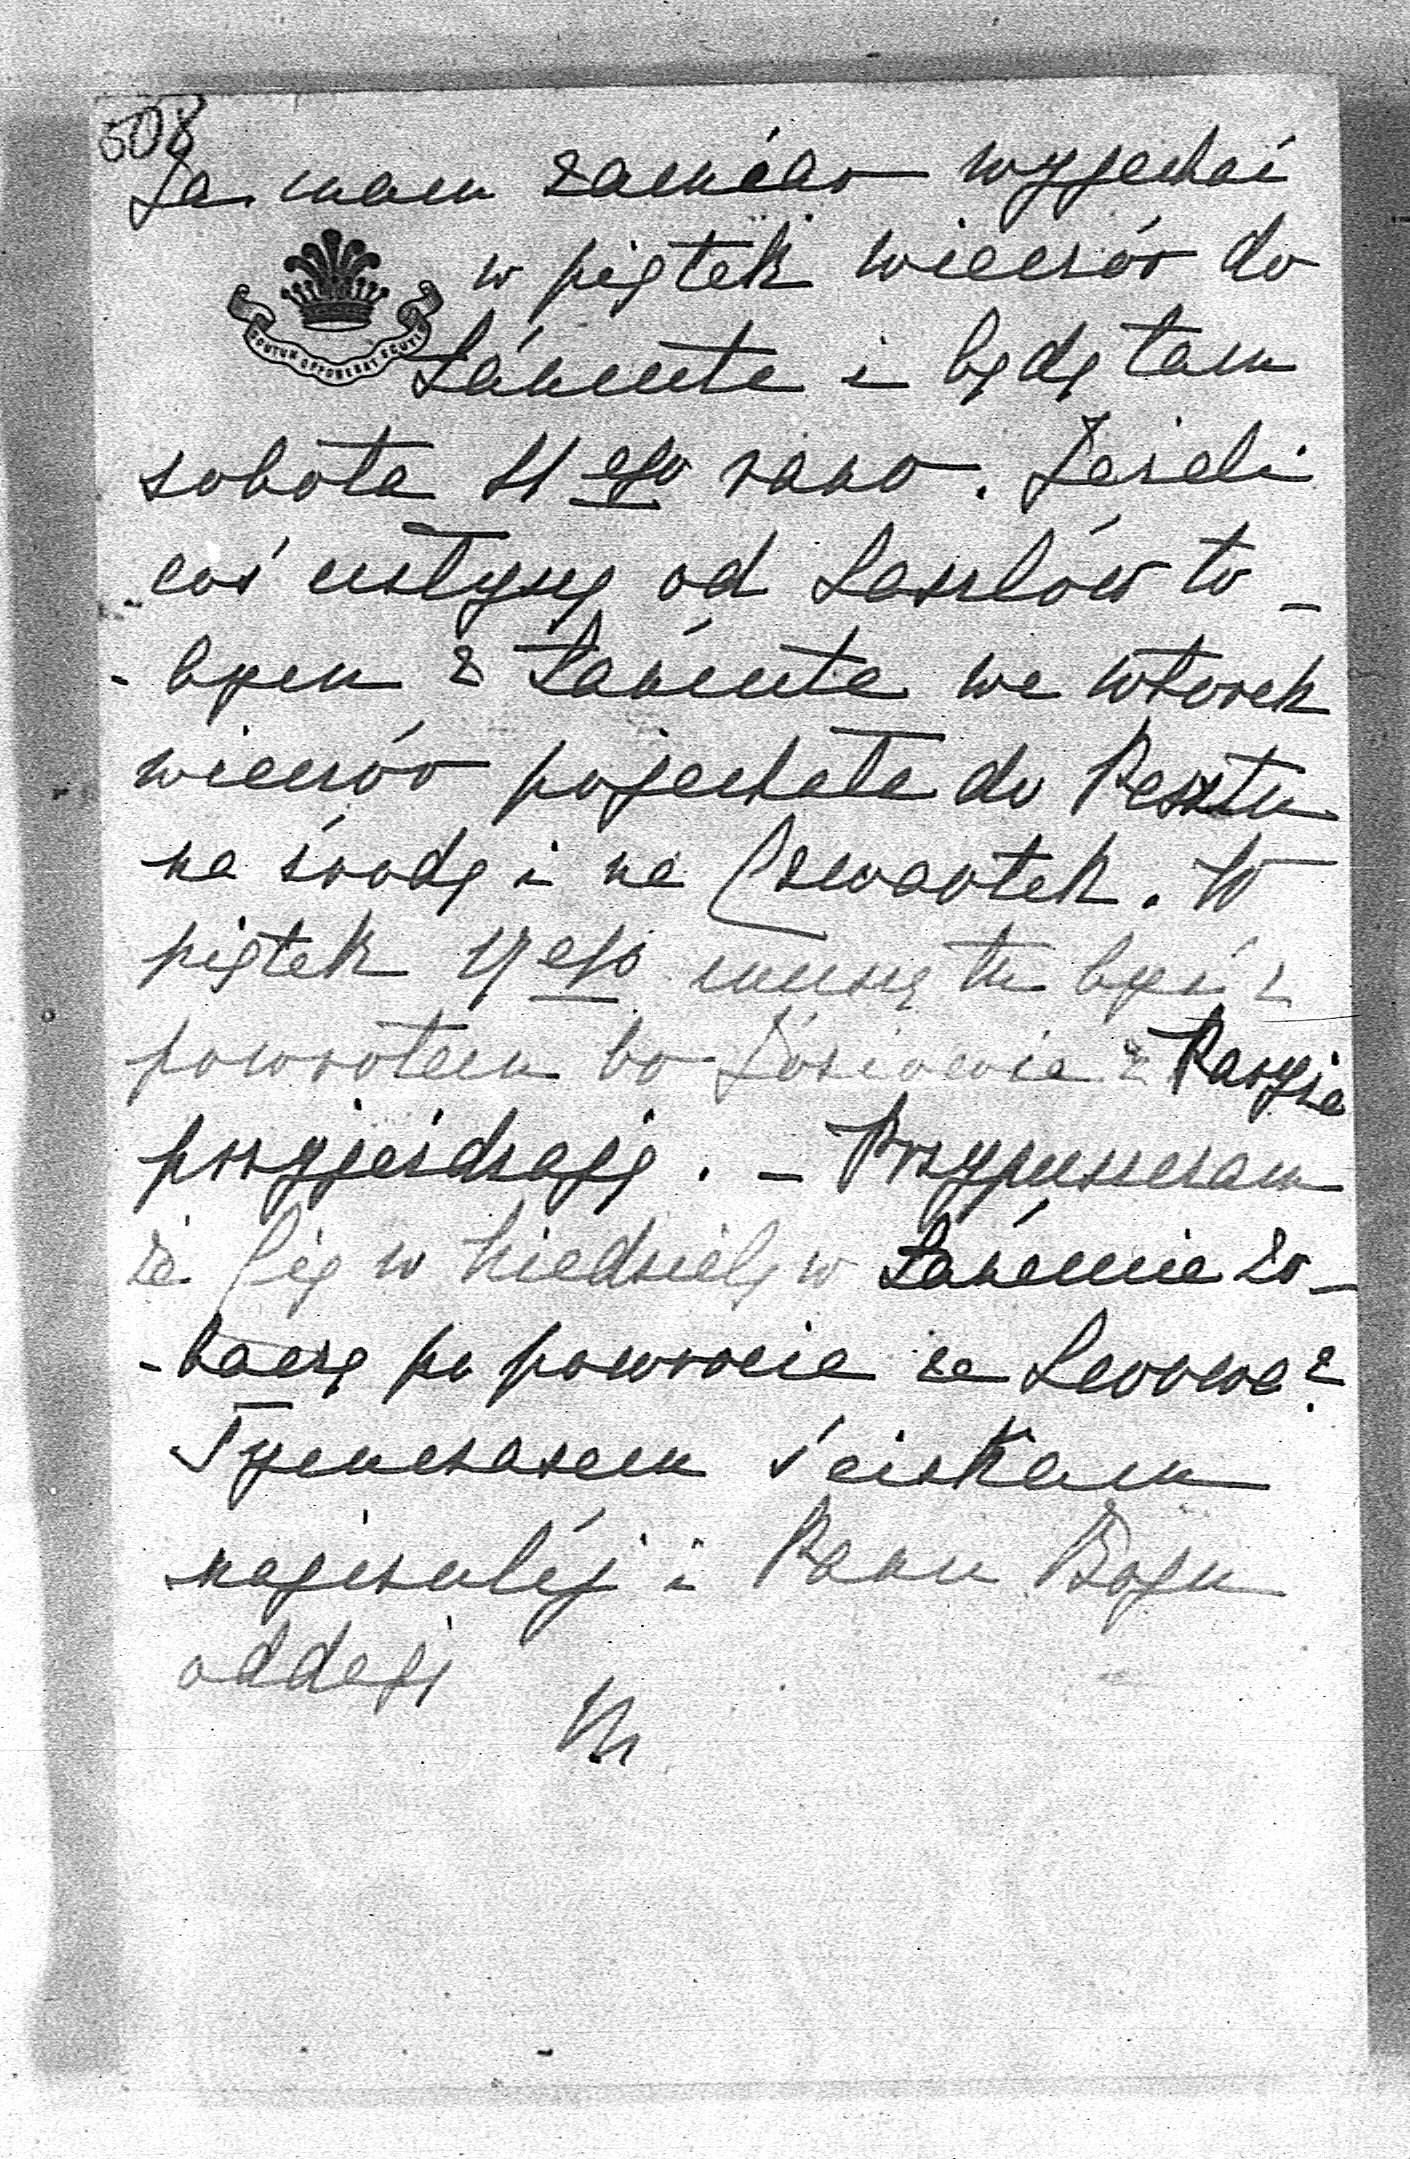 508
Ja mam zamiar wyjechać
w piątek wieczór do
SCUTUM OPPONEBAT SCUTIS
Łańcuta i będę tam
sobota 11 ego rano. Jeżeli
coś usłyszę od Laszlów to
- bym z Łańcuta we wtorek
wieczór pojechała do Pesztu
na środę i na Czwartek. W
piątek 17 ego muszę tu być z
powrotem bo Józiowie z Paryża
przyjeżdżają. – Przypuszczam
że Cię w Niedzielę w Łańcucie zo-
- baczę po powrocie ze Lwowa?
Tymczasem ściskam
najczulej i Panu Bogu
oddaję